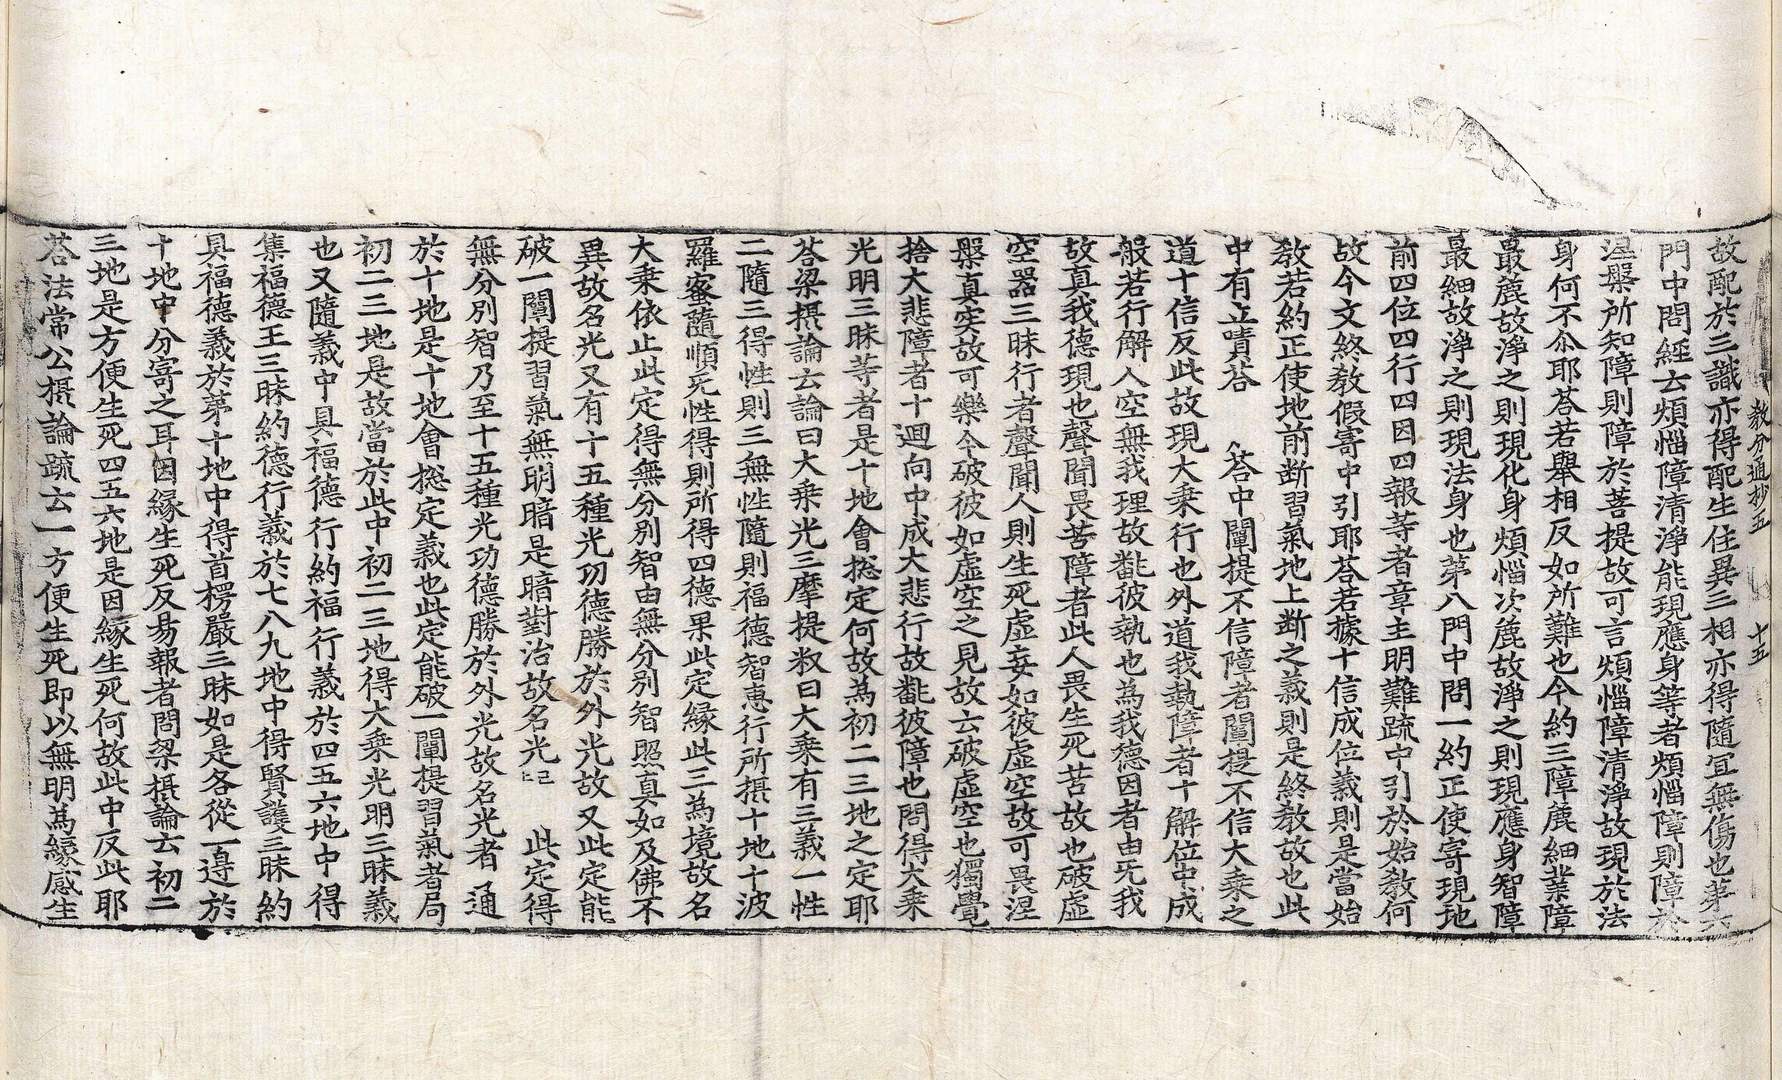 教分通抄五　十五
故配於三識亦得配生住異三相亦得隨冝無傷也苐六
門中問經云煩惱障清淨能現應身等者煩惱障則障於
涅槃所知障則障於菩提故可言煩惱障清淨故現於法
身何不尒耶荅若舉相反如所難也今約三障麁細業障
冣麁故淨之則現化身煩惱次麁故淨之則現應身智障
冣細故淨之則現法身也苐八門中問一約正使寄現地
前四位四行四因四報等者章主明難疏中引於始教何
故今文終教假寄中引耶荅若據十信成位義則是當始
教若約正使地前断習氣地上断之義則是終教故也此
中有立嘖荅　荅中闡提不信障者闡提不信大乗之
道十信反此故現大乗行也外道我執障者十解位中成
般若行解人空無我理故翻彼執也為我德因者由无我
故真我德現也聲聞畏苦障者此人畏生死苦故也破虛
空器三昧行者聲聞人則生死虛妄如彼虛空故可畏涅
槃真实故可樂今破彼如虛空之見故云破虛空也獨覺
捨大悲障者十迴向中成大悲行故翻彼障也問得大乗
光明三昧等者是十地會揔定何故為初二三地之定耶
荅梁攝論云論曰大乗光三摩提釈曰大乗有三義一性
二隨三得性則三無性隨則福德智恵行所攝十地十波
羅蜜隨順无性得則所得四德果此定緣此三為境故名
大乗依止此定得無分別智由無分別智照真如及佛不
異故名光又有十五種光功德勝於外光故又此定能
破一闡提習氣無明暗是暗對治故名光已上　此定得
無分別智乃至十五種光功德勝於外光故名光者通
於十地是十地會揔定義也此定能破一闡提習氣者局
初二三地是故當於此中初二三地得大乗光明三昧義
也又隨義中具福德行約福行義於四五六地中得
集福德王三昧約德行義於七八九地中得賢護三昧約
具福德義於苐十地中得首楞嚴三昧如是各從一邊於
十地中分寄之耳因緣生死反易報者問梁攝論云初二
三地是方便生死四五六地是因緣生死何故此中反此耶
荅法常公攝論疏云一方便生死即以無明為緣感生